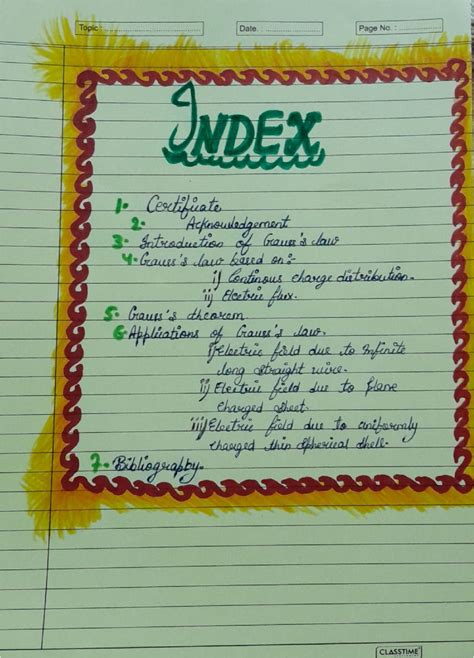 Topic :
Date. :
Page No. :
INDEX
1. Certificate
2. Acknowledgement
3. Introduction of Gauss's law
4. Gauss's law based on :-
i) Continous charge distribution.
ii) Electric flux.
5. Gauss's theorem
6. Applications of Gauss's law.
i) Electric field due to Infinite
long straight wire.
ii) Electric field due to plane
charged sheet.
iii) Electric field due to uniformaly
charged thin spherical shell.
7. Bibliography.
CLASSTIME